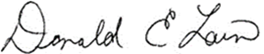 Donald E Lain